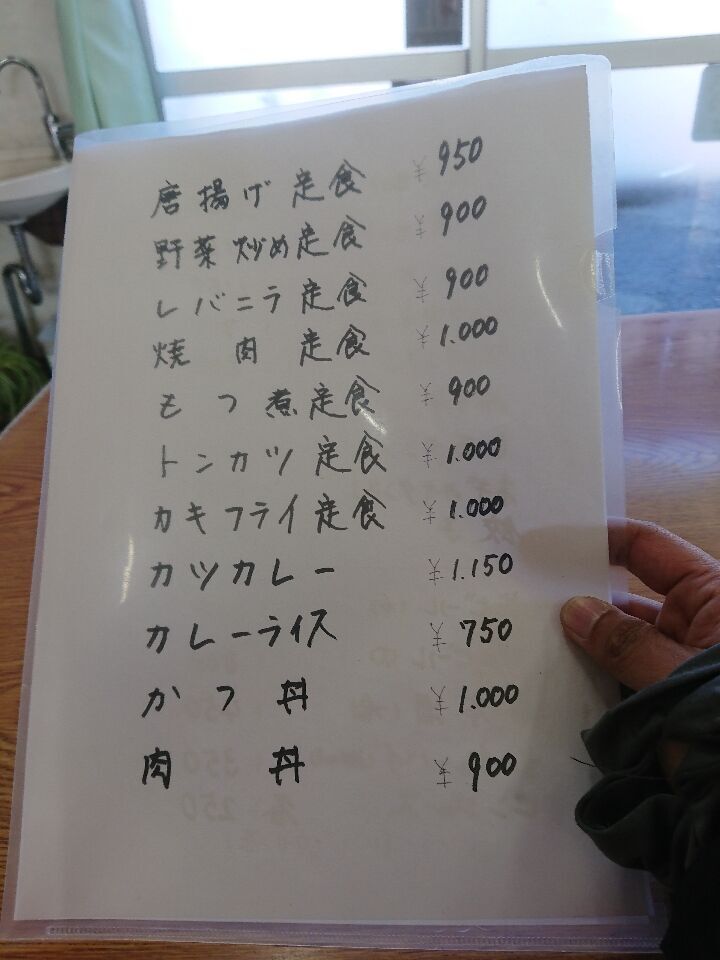 唐揚げ定食 ¥950
野菜炒め定食 ¥900
レバニラ定食 ¥900
焼肉定食 ¥1.000
もつ煮定食 ¥900
トンカツ定食 ¥1.000
カキフライ定食 ¥1.000
カツカレー ¥1.150
カレーライス ¥750
かつ丼 ¥1.000
肉丼 ¥900